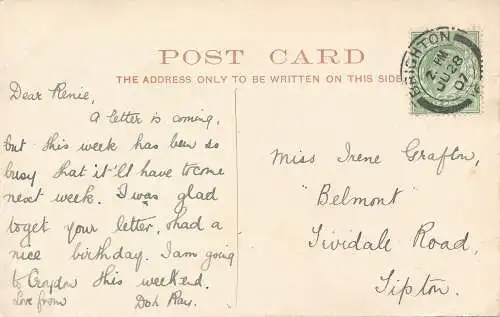 POST CARD
THE ADDRESS ONLY TO BE WRITTEN ON THIS SIDE
BRIGHTON
2. PM
JU 28
07
Dear Renie,
A letter is coming,
but this week has been so
busy that it'll have to come
next week. I was glad
to get your letter, & had a
nice birthday. I am going
to Croydon this weekend.
Love from
Miss Irene Grafton,
"Belmont"
Tividale Road,
Tipton.